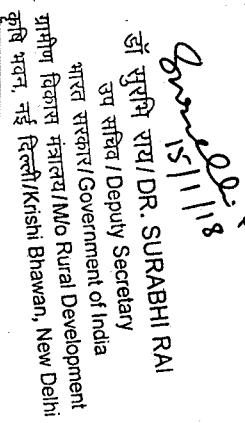 Surabhi
15/1/18
डॉ सुरभि राय/DR. SURABHI RAI
उप सचिव/Deputy Secretary
भारत सरकार/Government of India
ग्रामीण विकास मंत्रालय/M/o Rural Development
कृषि भवन, नई दिल्ली/Krishi Bhawan, New Delhi